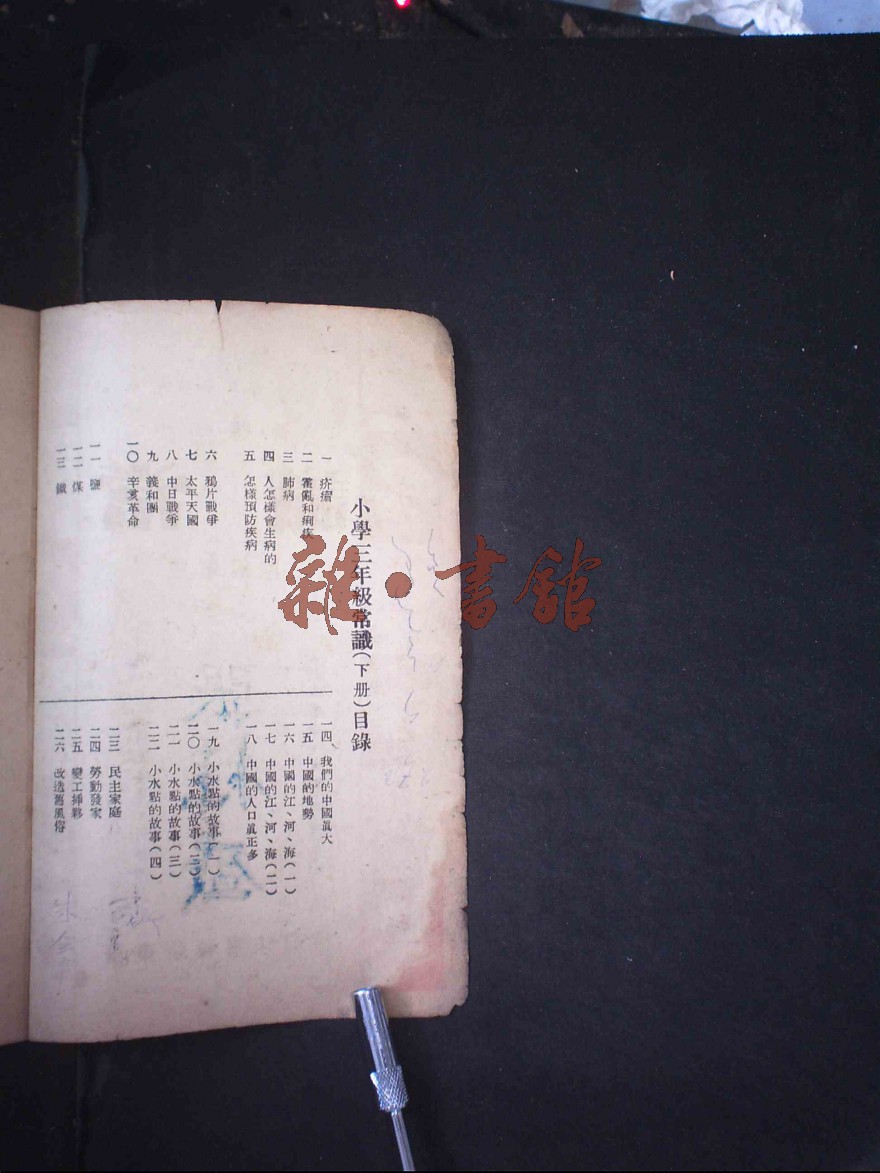 小學三年級常識(下册)目錄
一 疥瘡
二 霍亂和痢疾
三 肺病
四 人怎樣會生病的
五 怎樣預防疾病
六 鴉片戰爭
七 太平天國
八 中日戰爭
九 義和團
一〇 辛亥革命
一一 鹽
一二 煤
一三 鐵
一四、我們的中國眞大
一五 中國的地勢
一六 中國的江、河、海(一)
一七 中國的江、河、海(二)
一八 中國的人口眞正多
一九 小水點的故事(一)
二〇 小水點的故事(二)
二一 小水點的故事(三)
二二 小水點的故事(四)
二三 民主家庭
二四 勞動發家
二五 變工插夥
二六 改造舊風俗
雜·書館